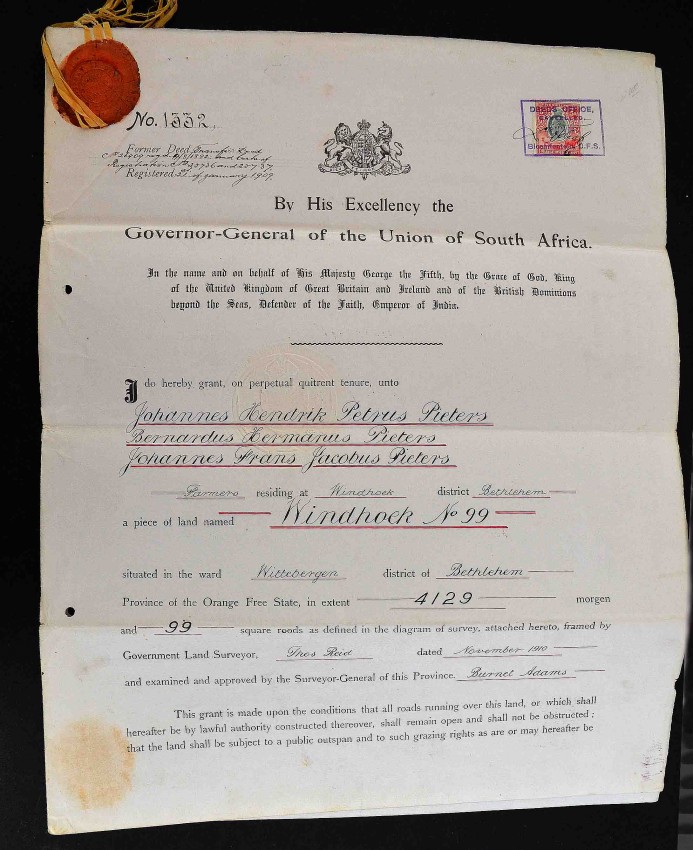 No. 1332.
Former Deed Transfer Deed
Registration
Registered 21 of January 1909
DEEDS OFFICE,
CANCELLED.
Bloemfontein O.F.S.
By His Excellency the
Governor-General of the Union of South Africa.
In the name and on behalf of His Majesty George the Fifth, by the Grace of God, King
of the United Kingdom of Great Britain and Ireland and of the British Dominions
beyond the Seas, Defender of the Faith, Emperor of India.
I do hereby grant, on perpetual quitrent tenure, unto
Johannes Hendrik Petrus Pieters
Bernardus Hermanus Pieters
Johannes Frans Jacobus Pieters
Farmers residing at Windhoek district Bethlehem
a piece of land named Windhoek No 99
situated in the ward Wittebergen district of Bethlehem
Province of the Orange Free State, in extent 4129 morgen
and 99 square roods as defined in the diagram of survey, attached hereto, framed by
Government Land Surveyor, Thos Reid dated November 1910
and examined and approved by the Surveyor-General of this Province. Burnet Adams
This grant is made upon the conditions that all roads running over this land, or which shall
hereafter be by lawful authority constructed thereover, shall remain open and shall not be obstructed;
that the land shall be subject to a public outspan and to such grazing rights as are or may hereafter be